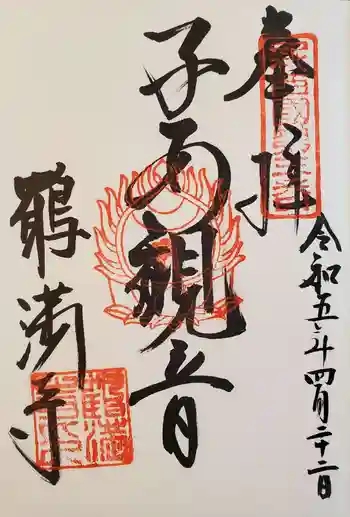 奉拝
令和五年四月二十二日
子安観音
鶴満寺